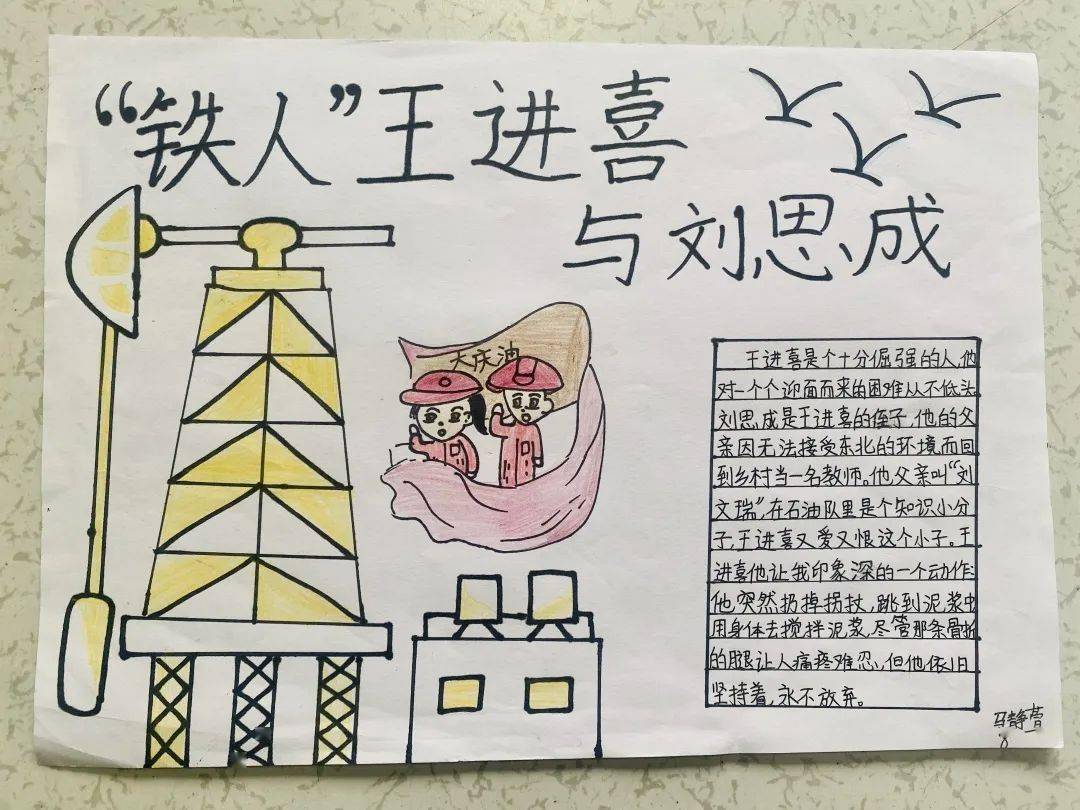 “铁人”王进喜
与刘思成
大庆油
王进喜是个十分倔强的人,他
对一个个迎面而来的困难从不低头。
刘思成是王进喜的侄子,他的父
亲因无法接受东北的环境而回
到乡村当一名教师。他父亲叫“刘
文瑞”,在石油队里是个知识小分
子,王进喜又爱又恨这个小子。王
进喜他让我印象深的一个动作:
他突然扔掉拐杖,跳到泥浆中
用身体去搅拌泥浆,尽管那条骨折
的腿让人痛疼难忍,但他依旧
坚持着,永不放弃。
马静萱